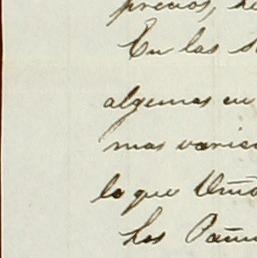 precios, 
En las
algunas en
mas varia
lo que Umd
Los Pañu